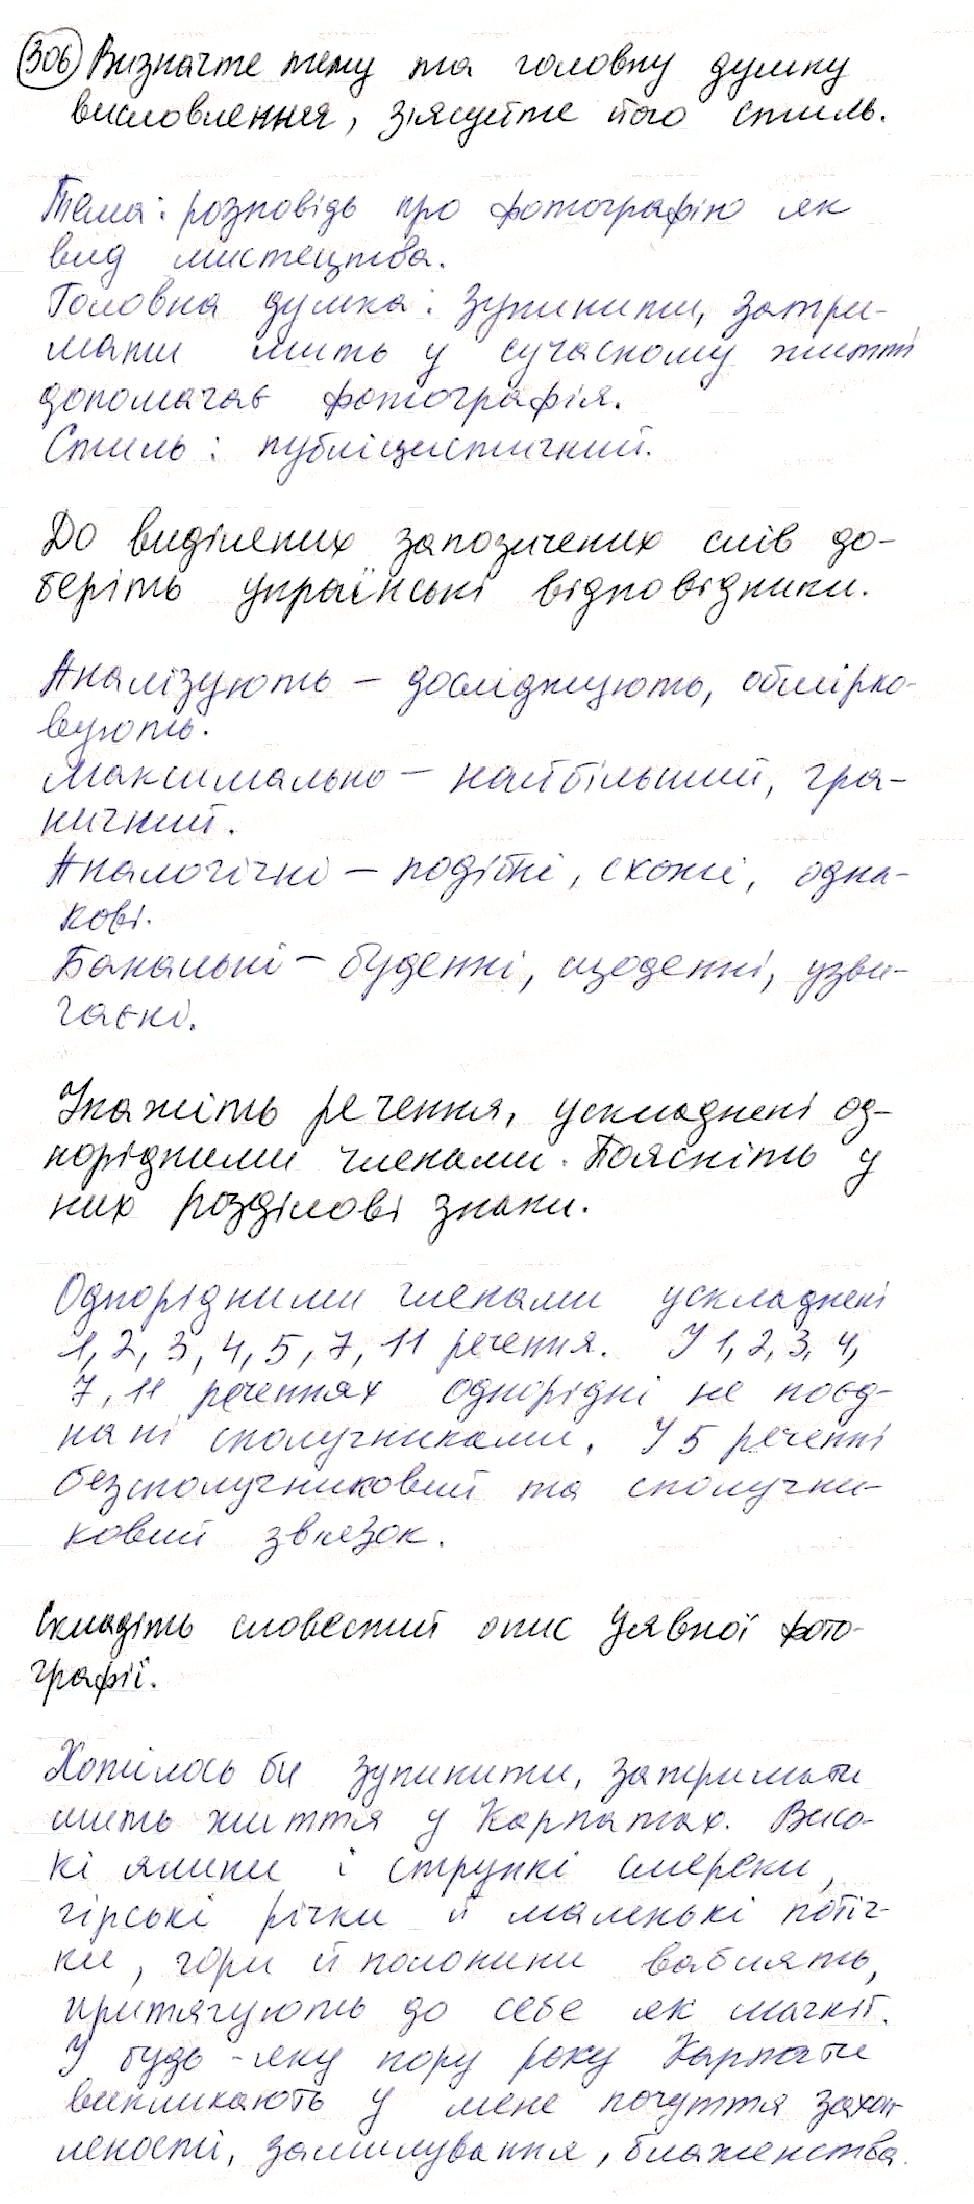 306 Визначте тему та головну думку
висловлення, зʼясуйте його стиль.
Тема: розповідь про фотографію як
вид мистецтва.
Головна думка: зупинити, затри-
мати мить у сучасному житті
допомагає фотографія.
Стиль: публіцистичний.
До виділених запозичених слів до-
беріть українські відповідники.
Аналізують – досліджують, обмірко-
вують.
Максимально – найбільший, гра-
ничний.
Аналогічні – подібні, схожі, одна-
кові.
Банальні – буденні, щоденні, узви-
чаєні.
Укажіть речення, ускладнені од-
норідними членами. Поясніть у
них розділові знаки.
Однорідними членами ускладнені
1, 2, 3, 4, 5, 7, 11 речення. У 1, 2, 3, 4,
7, 11 реченнях однорідні не поєд-
нані сполучниками. У 5 реченні
безсполучниковий та сполучни-
ковий звʼязок.
Складіть словесний опис уявної фото-
графії.
Хотілось би зупинити, затримати
мить життя у Карпатах. Висо-
кі ялини і стрункі смереки,
гірські річки й маленькі потіч-
ки, гори й полонини ваблять,
притягують до себе як магніт.
У будь-яку пору року Карпати
викликають у мене почуття захоп
леності, замилування, блаженства.